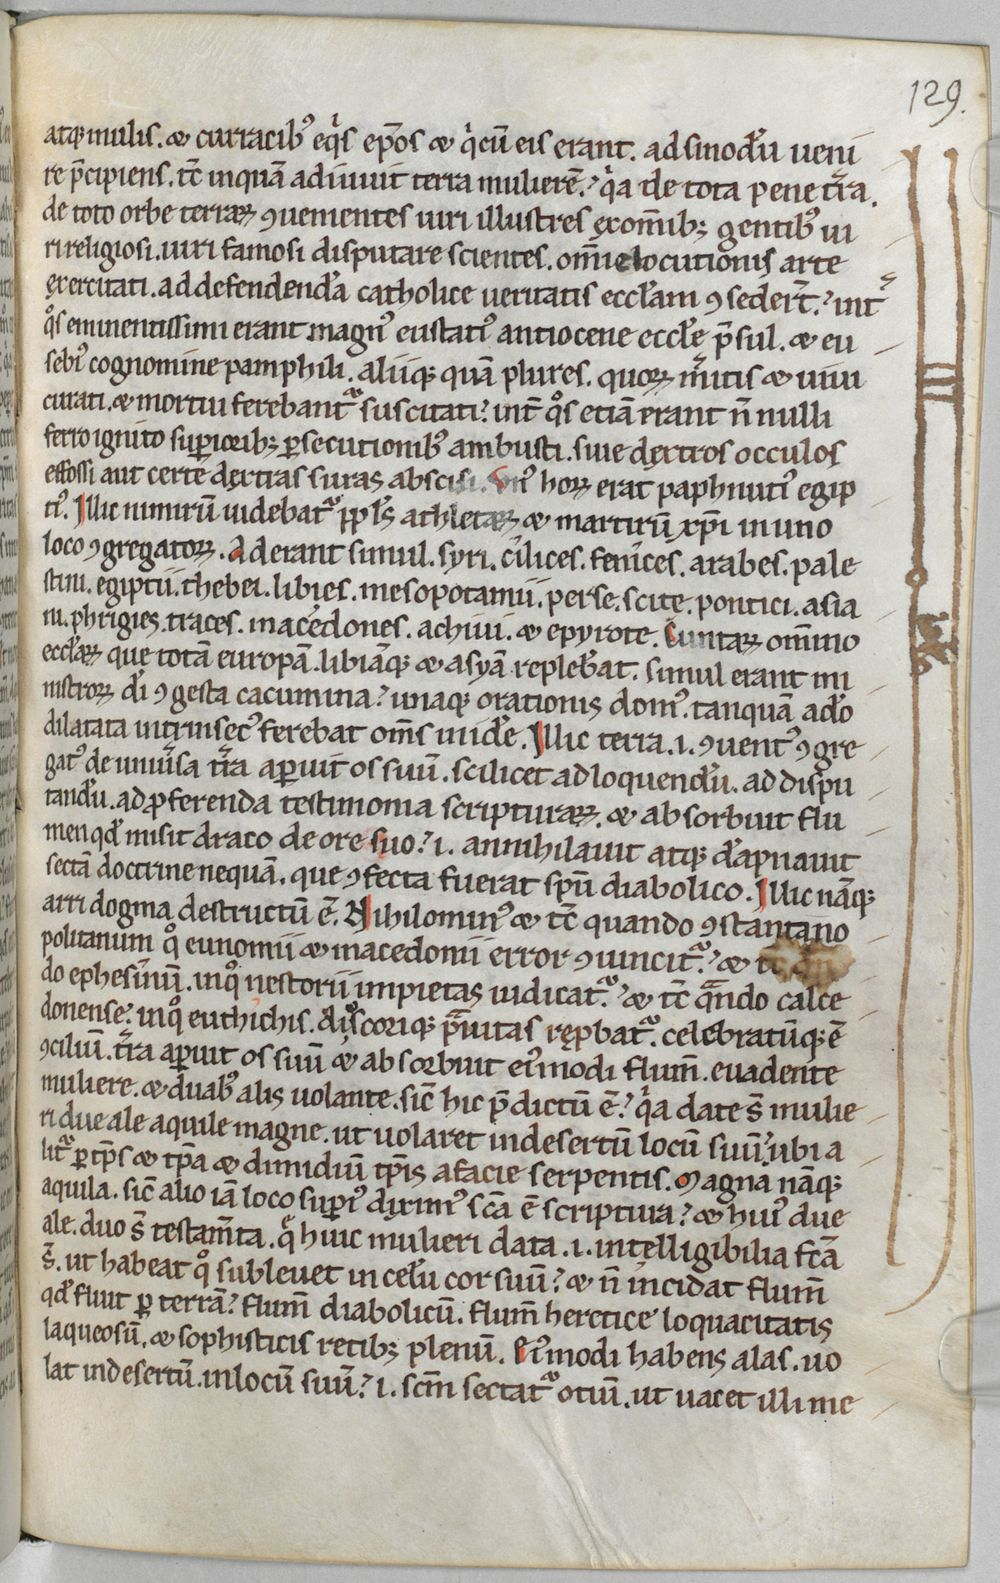 129.
atq; mulis. & curracib⁹ eq̇s ep̄os & q̇cū eis erant. ad sinodū ueni
re p̄cipiens. tc̄ inquā adiuuit terra mulierē. q̇a de tota pene tr̄a.
de toto orbe terraꝝ ꝯuenientes uiri illustres ex om̄ib; gentib⁹ ui
ri religiosi. uiri famosi disputare scientes. om̄i elocutionis arte
exercitati. ad defendendā catholice ueritatis eccl̄am ꝯsedert̄. int̄
q̊s eminentissimi erant magn⁹ eustati⁹ antiocene eccl̄e p̄sul. & eu
sebi⁹ cognomine pamphili. aliiq; quā plures. quoꝝ m̄itis & uiui
curati. & mortui ferebant̄ suscitati. int̄ q̊s etiā erant n̄ nulli
ferro ignito sup̄iorib; ꝑsecutionib⁹ ambusti. siue dextros occulos
effossi aut certe dextras suras abscisi. Vn⁹ hoꝝ erat paphnuti⁹ egip
ti⁹. Illic nimirū uidebat̄ pp̄ls athletaꝝ & martirū xp̄i in uno
loco ꝯgregatoꝝ. Aderant simul. syri. cilices. fenices. arabes. pale
stini. egiptii. thebei. libies. mesopotamii. perse. scite. pontici. asia
ni. phrigies. traces. macedones. achiui. & epyrote. Cuntaꝝ omnino
eccl̄aꝝ que totā europā. libiāq; & asyā replebat̄. simul erant mi
nistroꝝ dī ꝯgesta cacumina. unaq; orationis dom⁹. tanquā a dō
dilatata intrinsec⁹ ferebat om̄s in idē. Illic terra. i. ꝯuent⁹ ꝯgre
gat⁹ de uniūsa tr̄a aꝑuit os suū. scilicet ad loquendū. ad dispu
tandū. ad ꝓferenda testimonia scripturaꝝ. & absorbuit flu
men qd̄ misit draco de ore suo. i. annihilauit atq; dāpnauit
sectā doctrine nequā. que ꝯfecta fuerat sp̄u diabolico. Illic nāq;
arri dogma destructū ē. Nihilomin⁹ & tc̄ quando ꝯstantano
politanum q̊ eunomii & macedonii error ꝯuincit̄. & tc̄
do ephesinū. inq̊ nestorii impietas iudicat̄. & tc̄ q̄ndo calce
donense. inq̊ euthichis. discoriq; p̄uitas rep̱bat̄. celebratūq; ē
ꝯciliū. tr̄a aꝑuit os suū & absorbuit ei⁹modi flum̄. euadente
muliere. & duab⁹ alis uolante. sic̄ hic p̄dictū ē. q̇a date s̄ mulie
ri due ale aquile magne. ut uolaret in desertū locū suū. ubi a
lit̄ ꝑ tp̄s & tp̄a & dimidiū tp̄is a facie serpentis. Magna nāq;
aquila. sic̄ alio iā loco supi⁹ dixim⁹ sc̄a ē scriptura. & hui⁹ due
ale. duo s̄ testam̄ta. q̄ huic mulieri data. i. intelligibilia fc̄a
s̄. ut habeat q̊ subleuet in celū cor suū. & n̄ incidat flum̄
qd̄ fluit ꝑ terrā. flum̄ diabolicū. flum̄ heretice loquacitatis
laqueosū. & sophisticis retib; plenū. Ei⁹modi habens alas. uo
lat in desertū. in locū suū. i. scm̄ sectat̄ otiū. ut uacet illi me